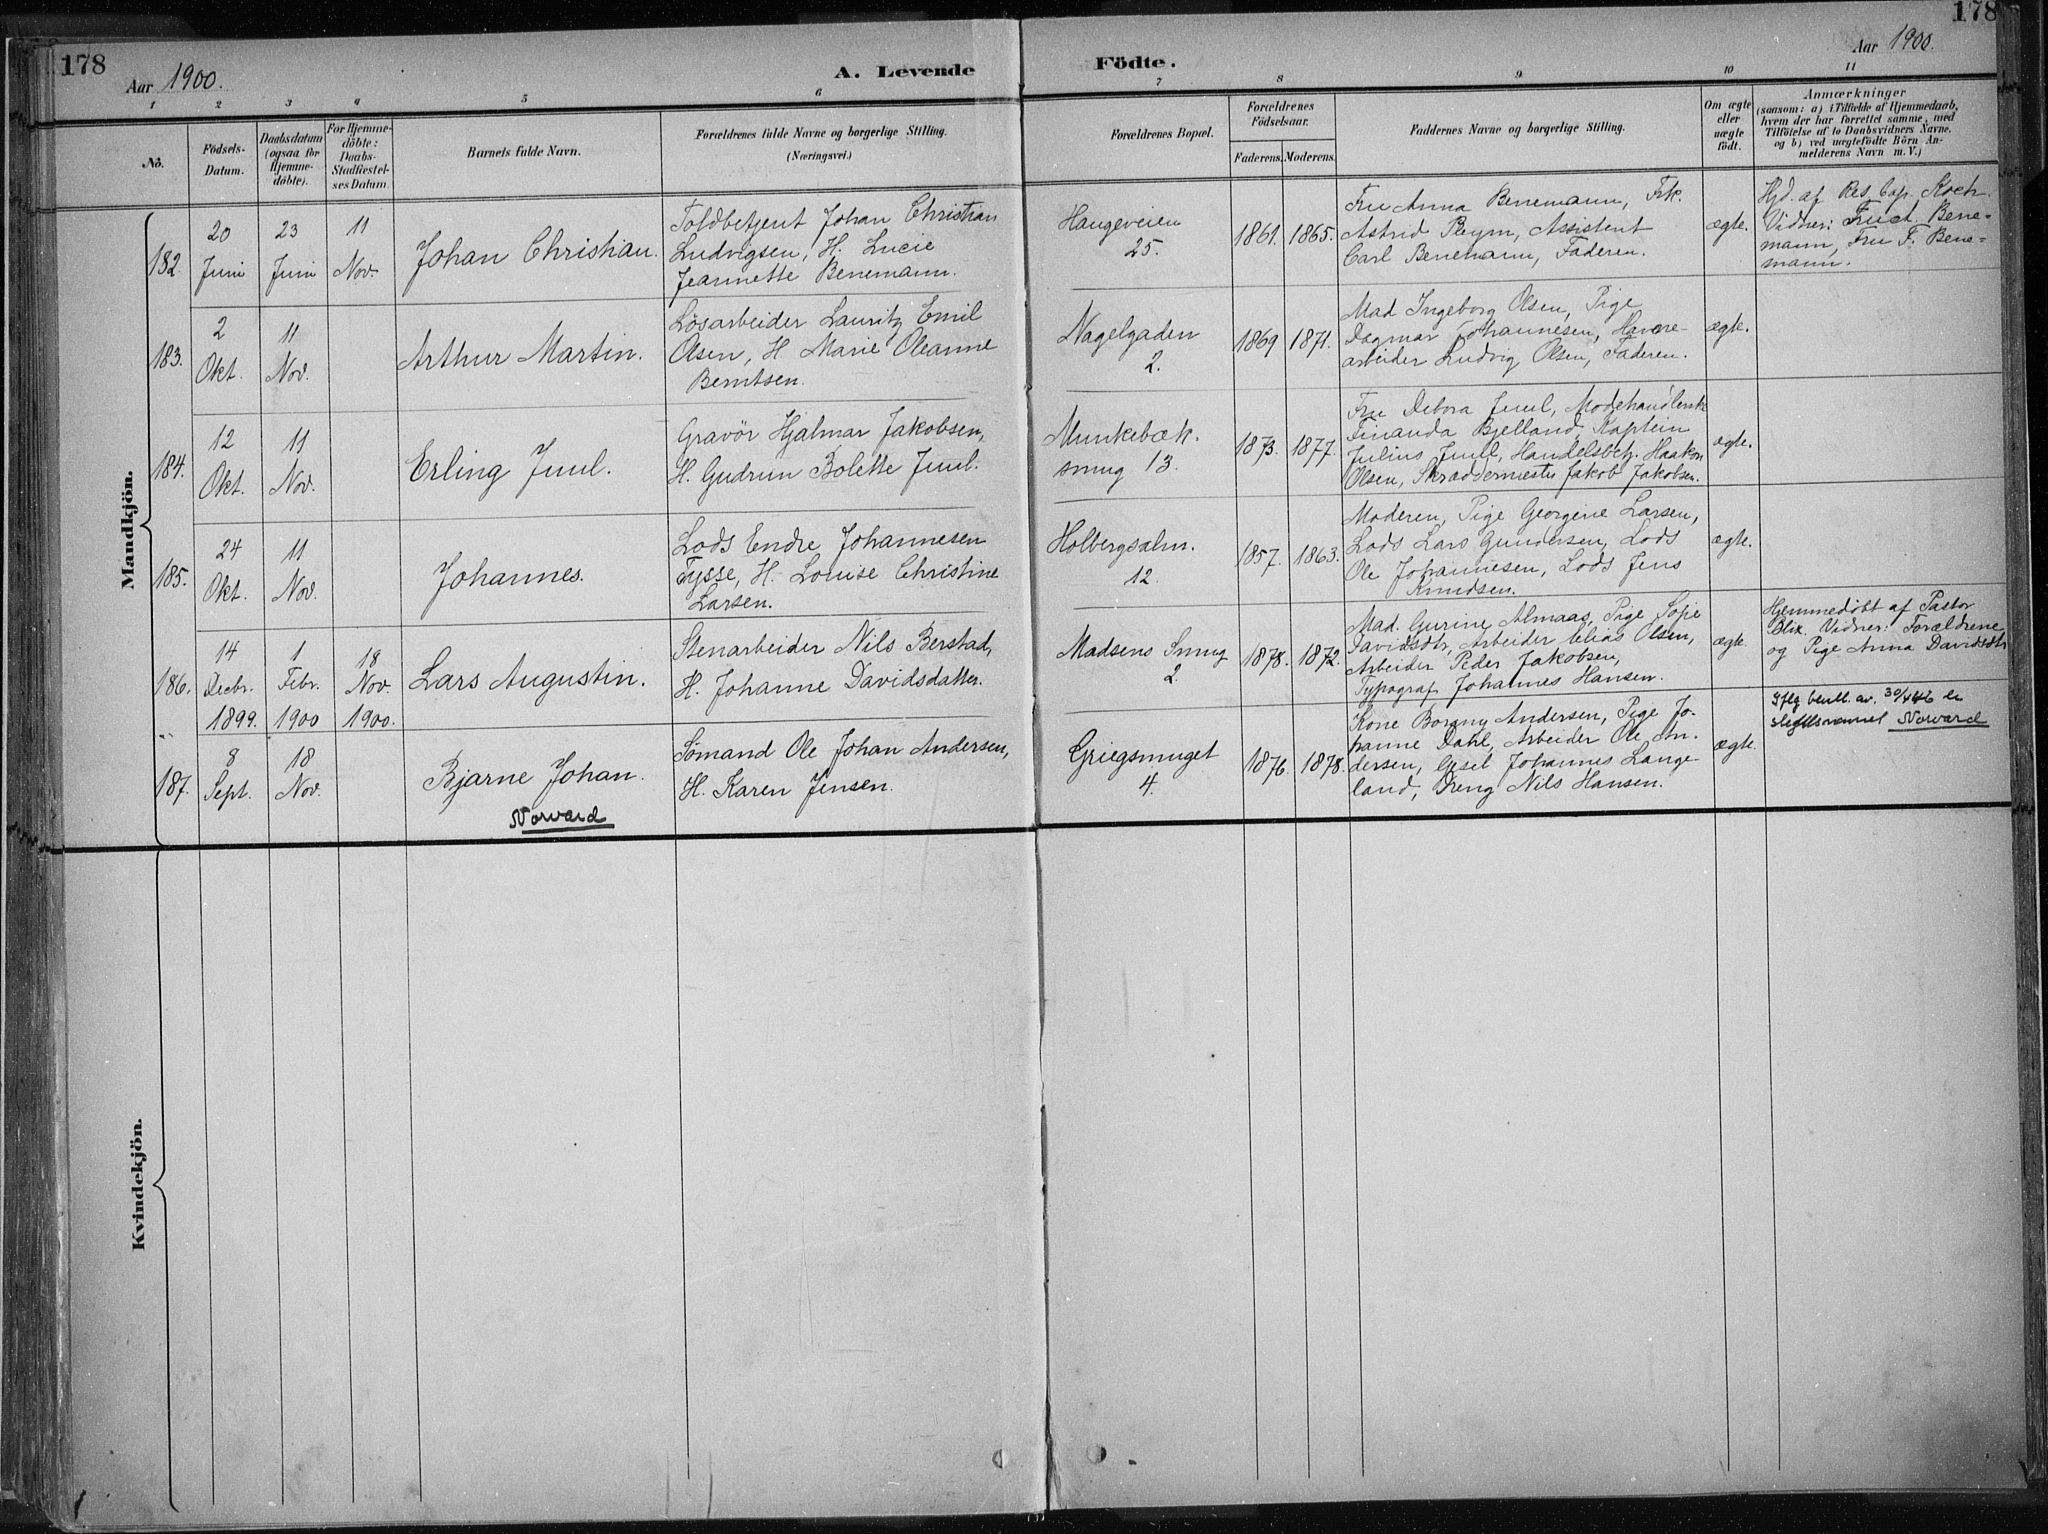 178
Aar 1900.
A. Levende
Födte.
Aar 1900.
178
1 2 3 4 5 6 7 8 9 10 11
Nö.
Födsels-
Datum.
Daabsdatum
(ogsaa for
Hjemme-
döbte).
For Hjemme-
döbte:
Daabs-
Stadfæstel-
ses Datum.
Barnets fulde Navn.
Forældrenes fulde Navne og borgerlige Stilling.
(Næringsvei.)
Forældrenes Bopæl.
Forældrenes
Födselsaar.
Faderens. Moderens.
Faddernes Navne og borgerlige Stilling.
Om ægte
eller
uægte
födt.
Anmærkninger
(saasom: a) i Tilfælde af Hjemmedaab,
hvem der har forrettet samme, med
Tilföielse af to Daabsvidners Navne,
og b) ved uægtefödte Börn An-
melderens Navn m. V.)
Mandkjön.
182.
20
Juni
23
Juni
11
Nov.
Johan Christian.
Toldbetjent Johan Christian
Ludvigsen, H. Lucie
Jeannette Benemann.
Haugeveien
25.
1861. 1865.
Fru Anna Benemann, Frk.
Astrid Reym, Assistent
Carl Benemann, Faderen.
ægte.
Hjd. af Res. Cap. Koch.
Vidner: Fru A. Bene-
mann, Fru F. Bene-
mann.
183.
2
Okt.
11
Nov.
Arthur Martin.
Lösarbeider Lauritz Emil
Olsen, H. Marie Oleanne
Berntsen.
Nagelgaden
2.
1869 1871.
Mad Ingeborg Olsen, Pige
Dagmar Johannesen, Havne-
arbeider Ludvig Olsen, Faderen.
ægte.
184.
12
Okt.
11
Nov.
Erling Juul.
Gravör Hjalmar Jakobsen,
H. Gudrun Bolette Juul.
Munkebæk.
smug 13.
1873. 1877.
Fru Debora Juul, Modehandlerske
Finanda Bjelland, Kaptein
Julius Juul, Handelsbetj. Haakon
Olsen, Skræddermester Jakob Jakobsen.
ægte.
185.
24
Okt.
11
Nov.
Johannes.
Lods Endre Johannesen
Tysse, H. Louise Christine
Larsen.
Holbergsalm.
12.
1857. 1863.
Moderen, Pige Georgine Larsen,
Lods Lars Gundersen, Lods
Ole Johannesen, Lods Jens
Knudsen.
ægte.
186.
14
Decbr.
1899.
1
Febr.
1900
18
Nov.
1900.
Lars Augustin.
Stenarbeider Nils Berstad,
H. Johanne Davidsdatter.
Madsens Smug
2.
1878. 1872.
Mad. Gurine Almaas, Pige Sofie
Davidsdtr, Arbeider Elias Olsen,
Arbeider Peder Jakobsen,
Typograf Johannes Hansen.
ægte.
Hjemmedöbt af Pastor
Blix. Vidner: Forældrene
og Pige Anna Davidsdtr
187.
8
Sept.
18
Nov.
Bjarne Johan.
Norvard
Sømand Ole Johan Andersen,
H. Karen Jensen.
Griegsmuget
4.
1876. 1878.
Kone Borgny Andersen, Pige Jo-
hanne Dahl, Arbeider Ole An-
dersen, Gsel Johannes Lange-
land, Dreng Nils Hansen.
ægte.
Iflg bevill. av. er
slegtsnavnet Norvard
Kvindekjön.